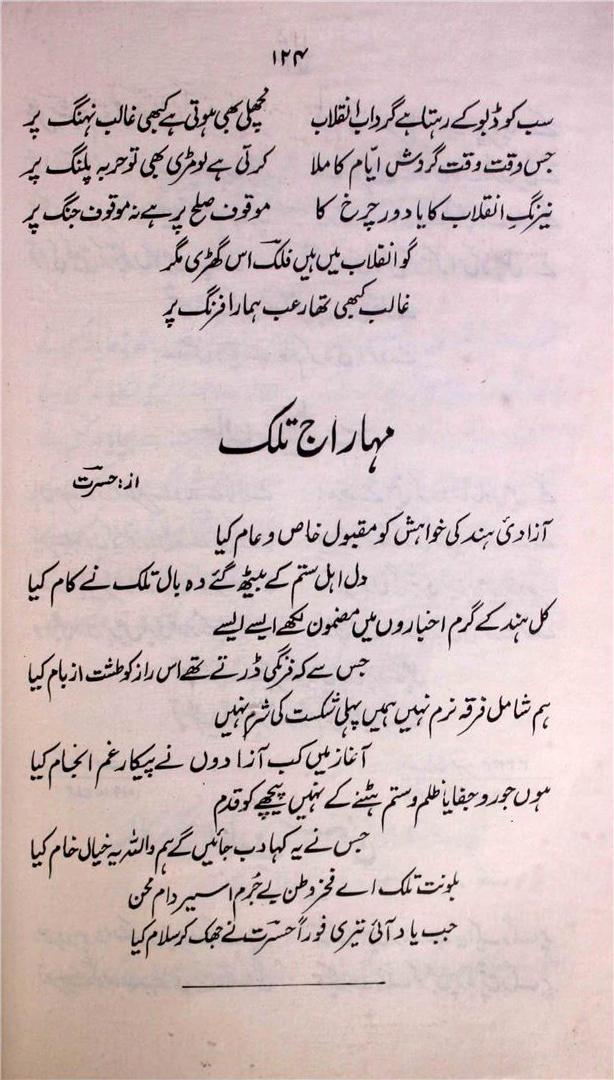 ۱۲۴
سب کو ڈبو کے رہتا ہے گرداب انقلاب مچھلی بھی ہوتی ہے کبھی غالب نہنگ پر
جس وقت وقت گردش ایّام کا ملا کرتی ہے لومڑی بھی تو حربہ پلنگ پر
نیزنگِ انقلاب کا یا دور چرخ کا موقوف صلح پر ہے نہ موقوف جنگ پر
گو انقلاب میں ہیں فلک اس گھڑی مگر
غالب کبھی تھا رعب ہمارا فرنگ پر
مہاراج تلک
از: حسرت
آزادئ ہند کی خواہش کو مقبول خاص و عام کیا
دل اہل ستم کے بیٹھ گئے وہ بال تلک نے کام کیا
کل ہند کے گرم اخباروں میں مضمون لکھے ایسے ایسے
جس سے کہ فرنگی ڈرتے تھے اس راز کو طشت از بام کیا
ہم شامل فرقہ نرم نہیں ہمیں پہلی شکست کی شرم نہیں
آغاز میں کب آزادوں نے پیکار غم انجام کیا
ہوں جور و جفا یا ظلم و ستم ہٹنے کے نہیں پیچھے کو قدم
جس نے یہ کہا دب جائیں گے ہم واللہ یہ خیال خام کیا
بلونت تلک اے فخر وطن بے جُرم اسیر دام محن
جب یاد آئی تیری فوراً حسرت نے جھک کر سلام کیا